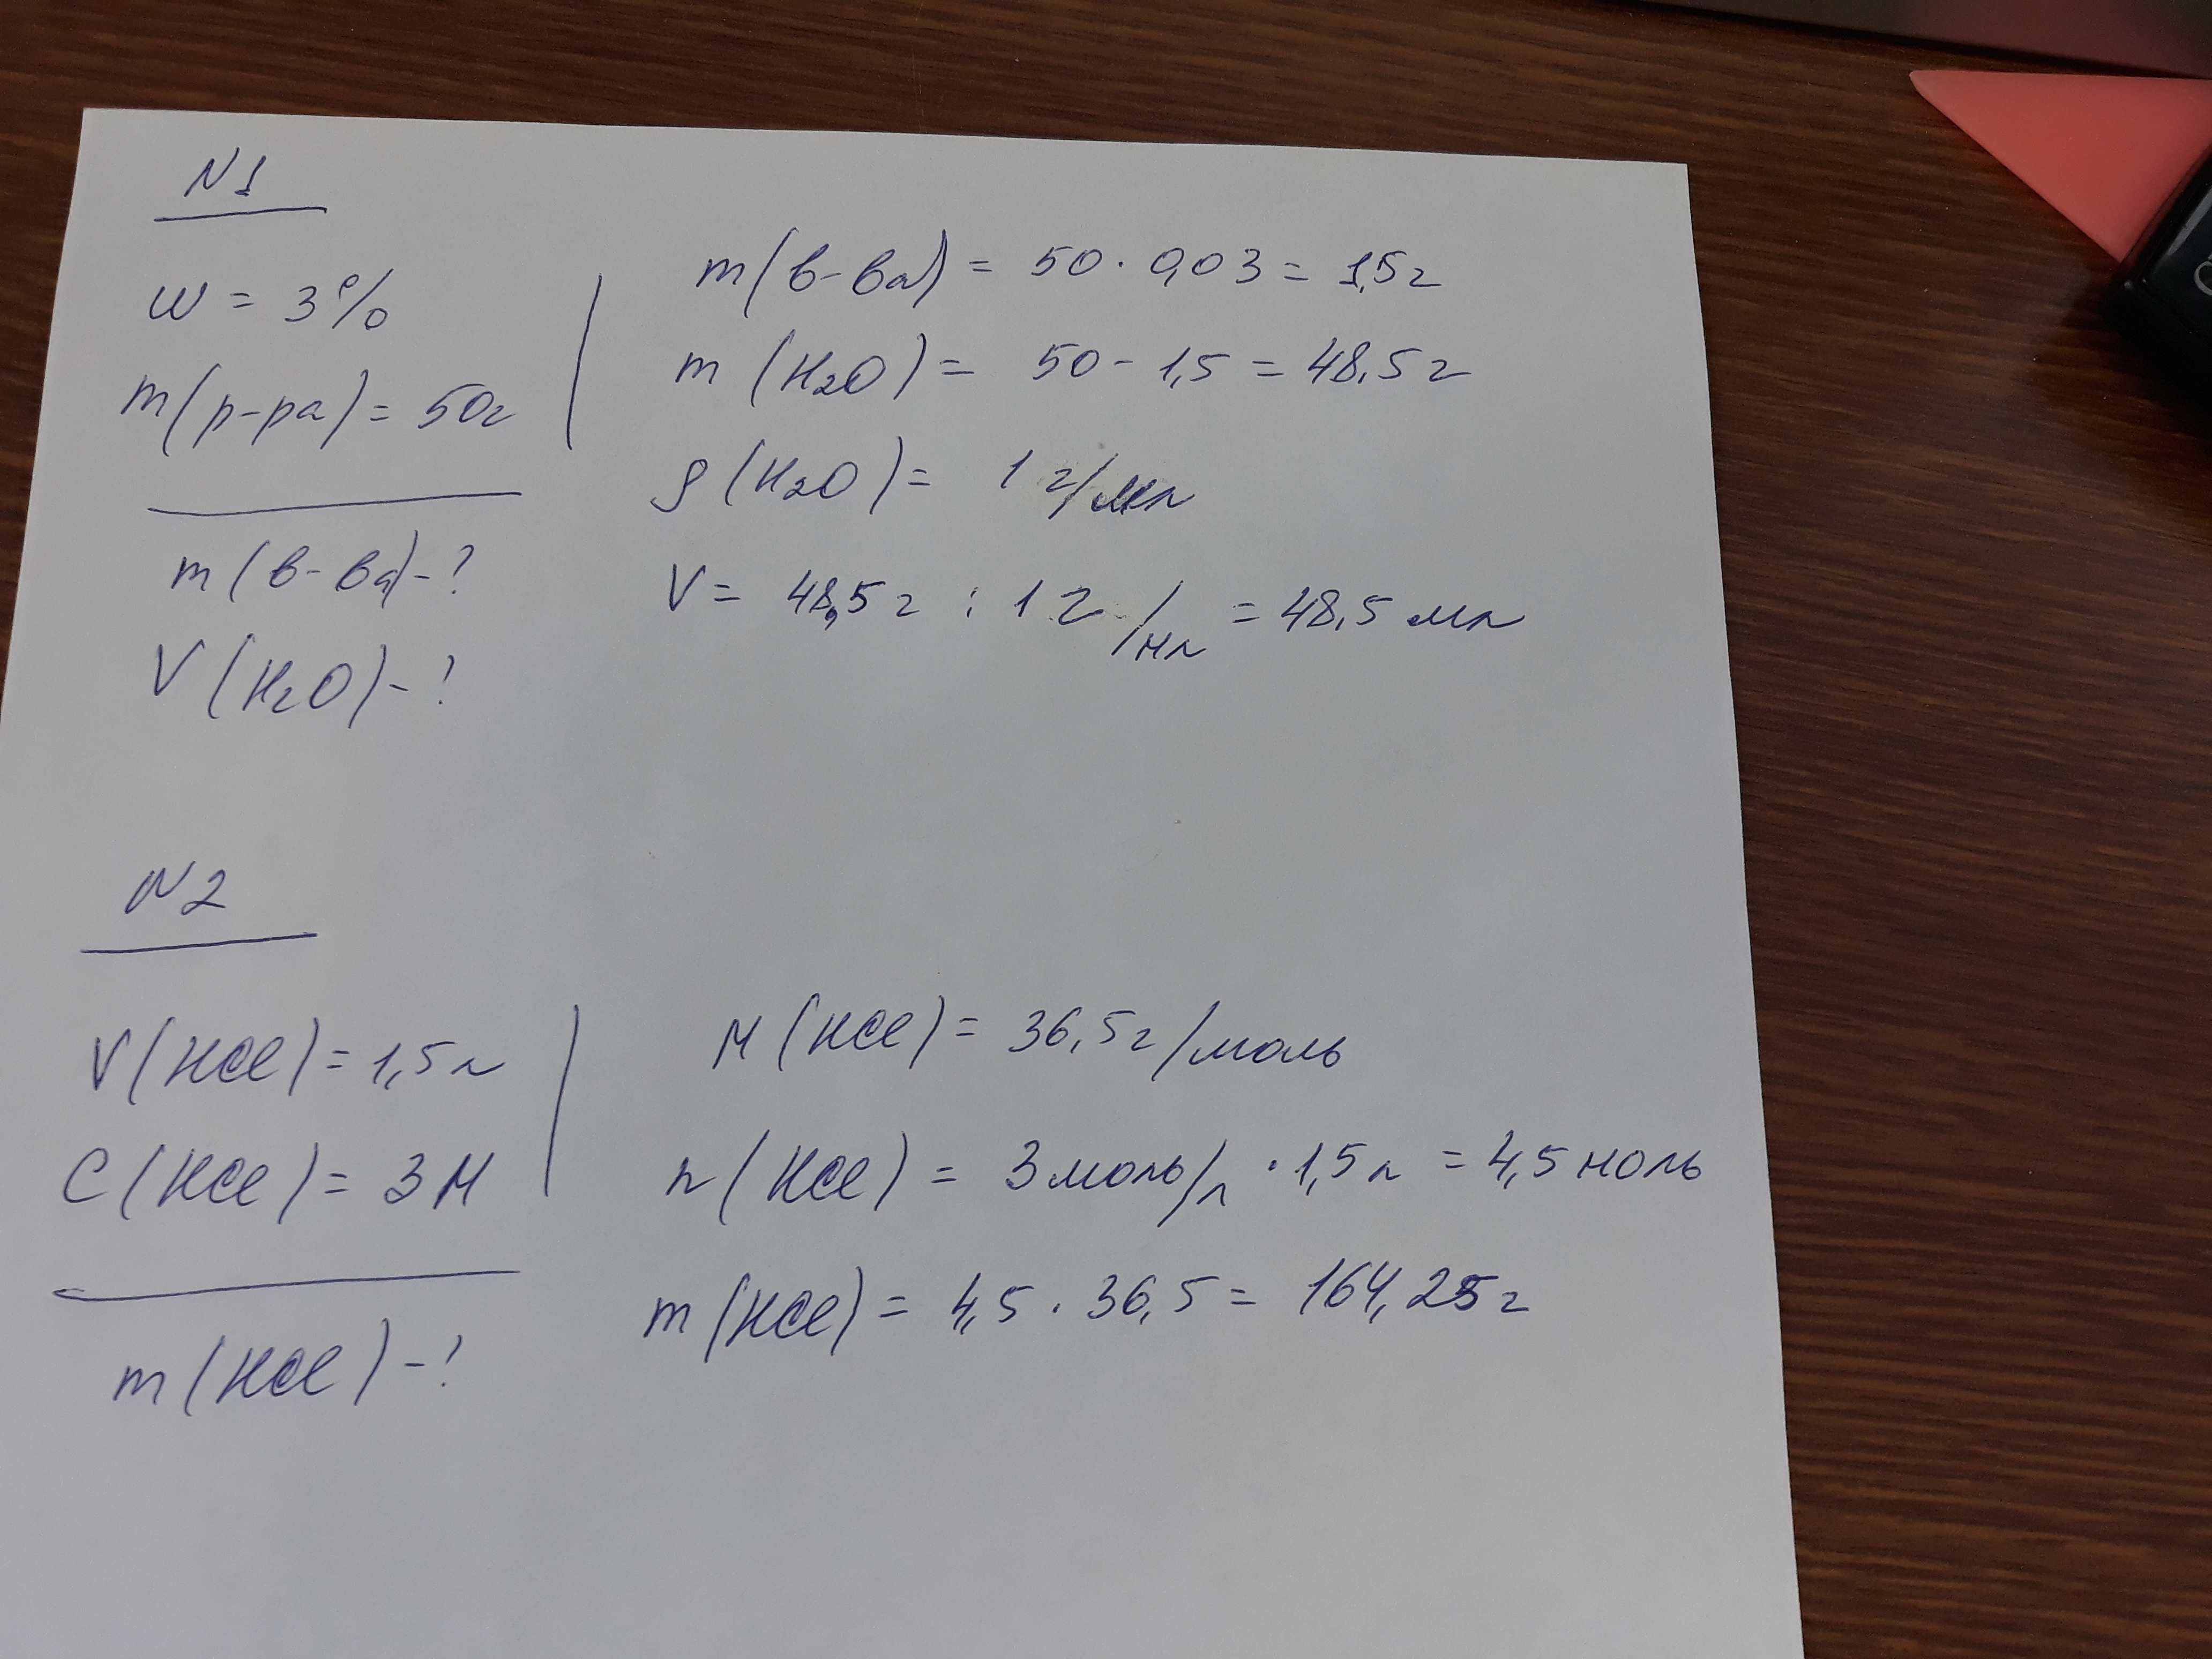 N1
w = 3%
m(р-ра) = 50г
m(в-ва) - ?
V(H₂O) - ?
m(в-ва) = 50 · 0,03 = 1,5г
m(H₂O) = 50 - 1,5 = 48,5г
ρ(H₂O) = 1 г/мл
V = 48,5г : 1 г/мл = 48,5 мл
N2
V(HCl) = 1,5л
C(HCl) = 3M
m(HCl) - ?
M(HCl) = 36,5г/моль
n(HCl) = 3моль/л · 1,5л = 4,5 моль
m(HCl) = 4,5 · 36,5 = 164,25г